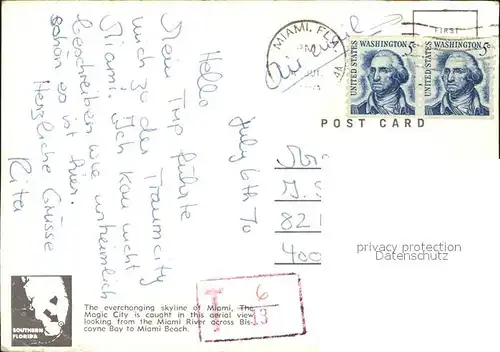 July 6th 70
Hello
Mein Trip führte
mich zu der Traumcity
Miami. Ich kan nicht
beschreiben wie unheimlich
schön es ist hier.
Herzliche Grüsse
Rita
MIAMI, FLA.
FIRST
Air Mail
UNITED STATES WASHINGTON 5c
UNITED STATES WASHINGTON 5c
POST CARD
J. S
821
400
privacy protection
veikkos-archiv
SOUTHERN
FLORIDA
The everchanging skyline of Miami, The
Magic City is caught in this aerial view
looking from the Miami River across Bis-
cayne Bay to Miami Beach.
T 6
13